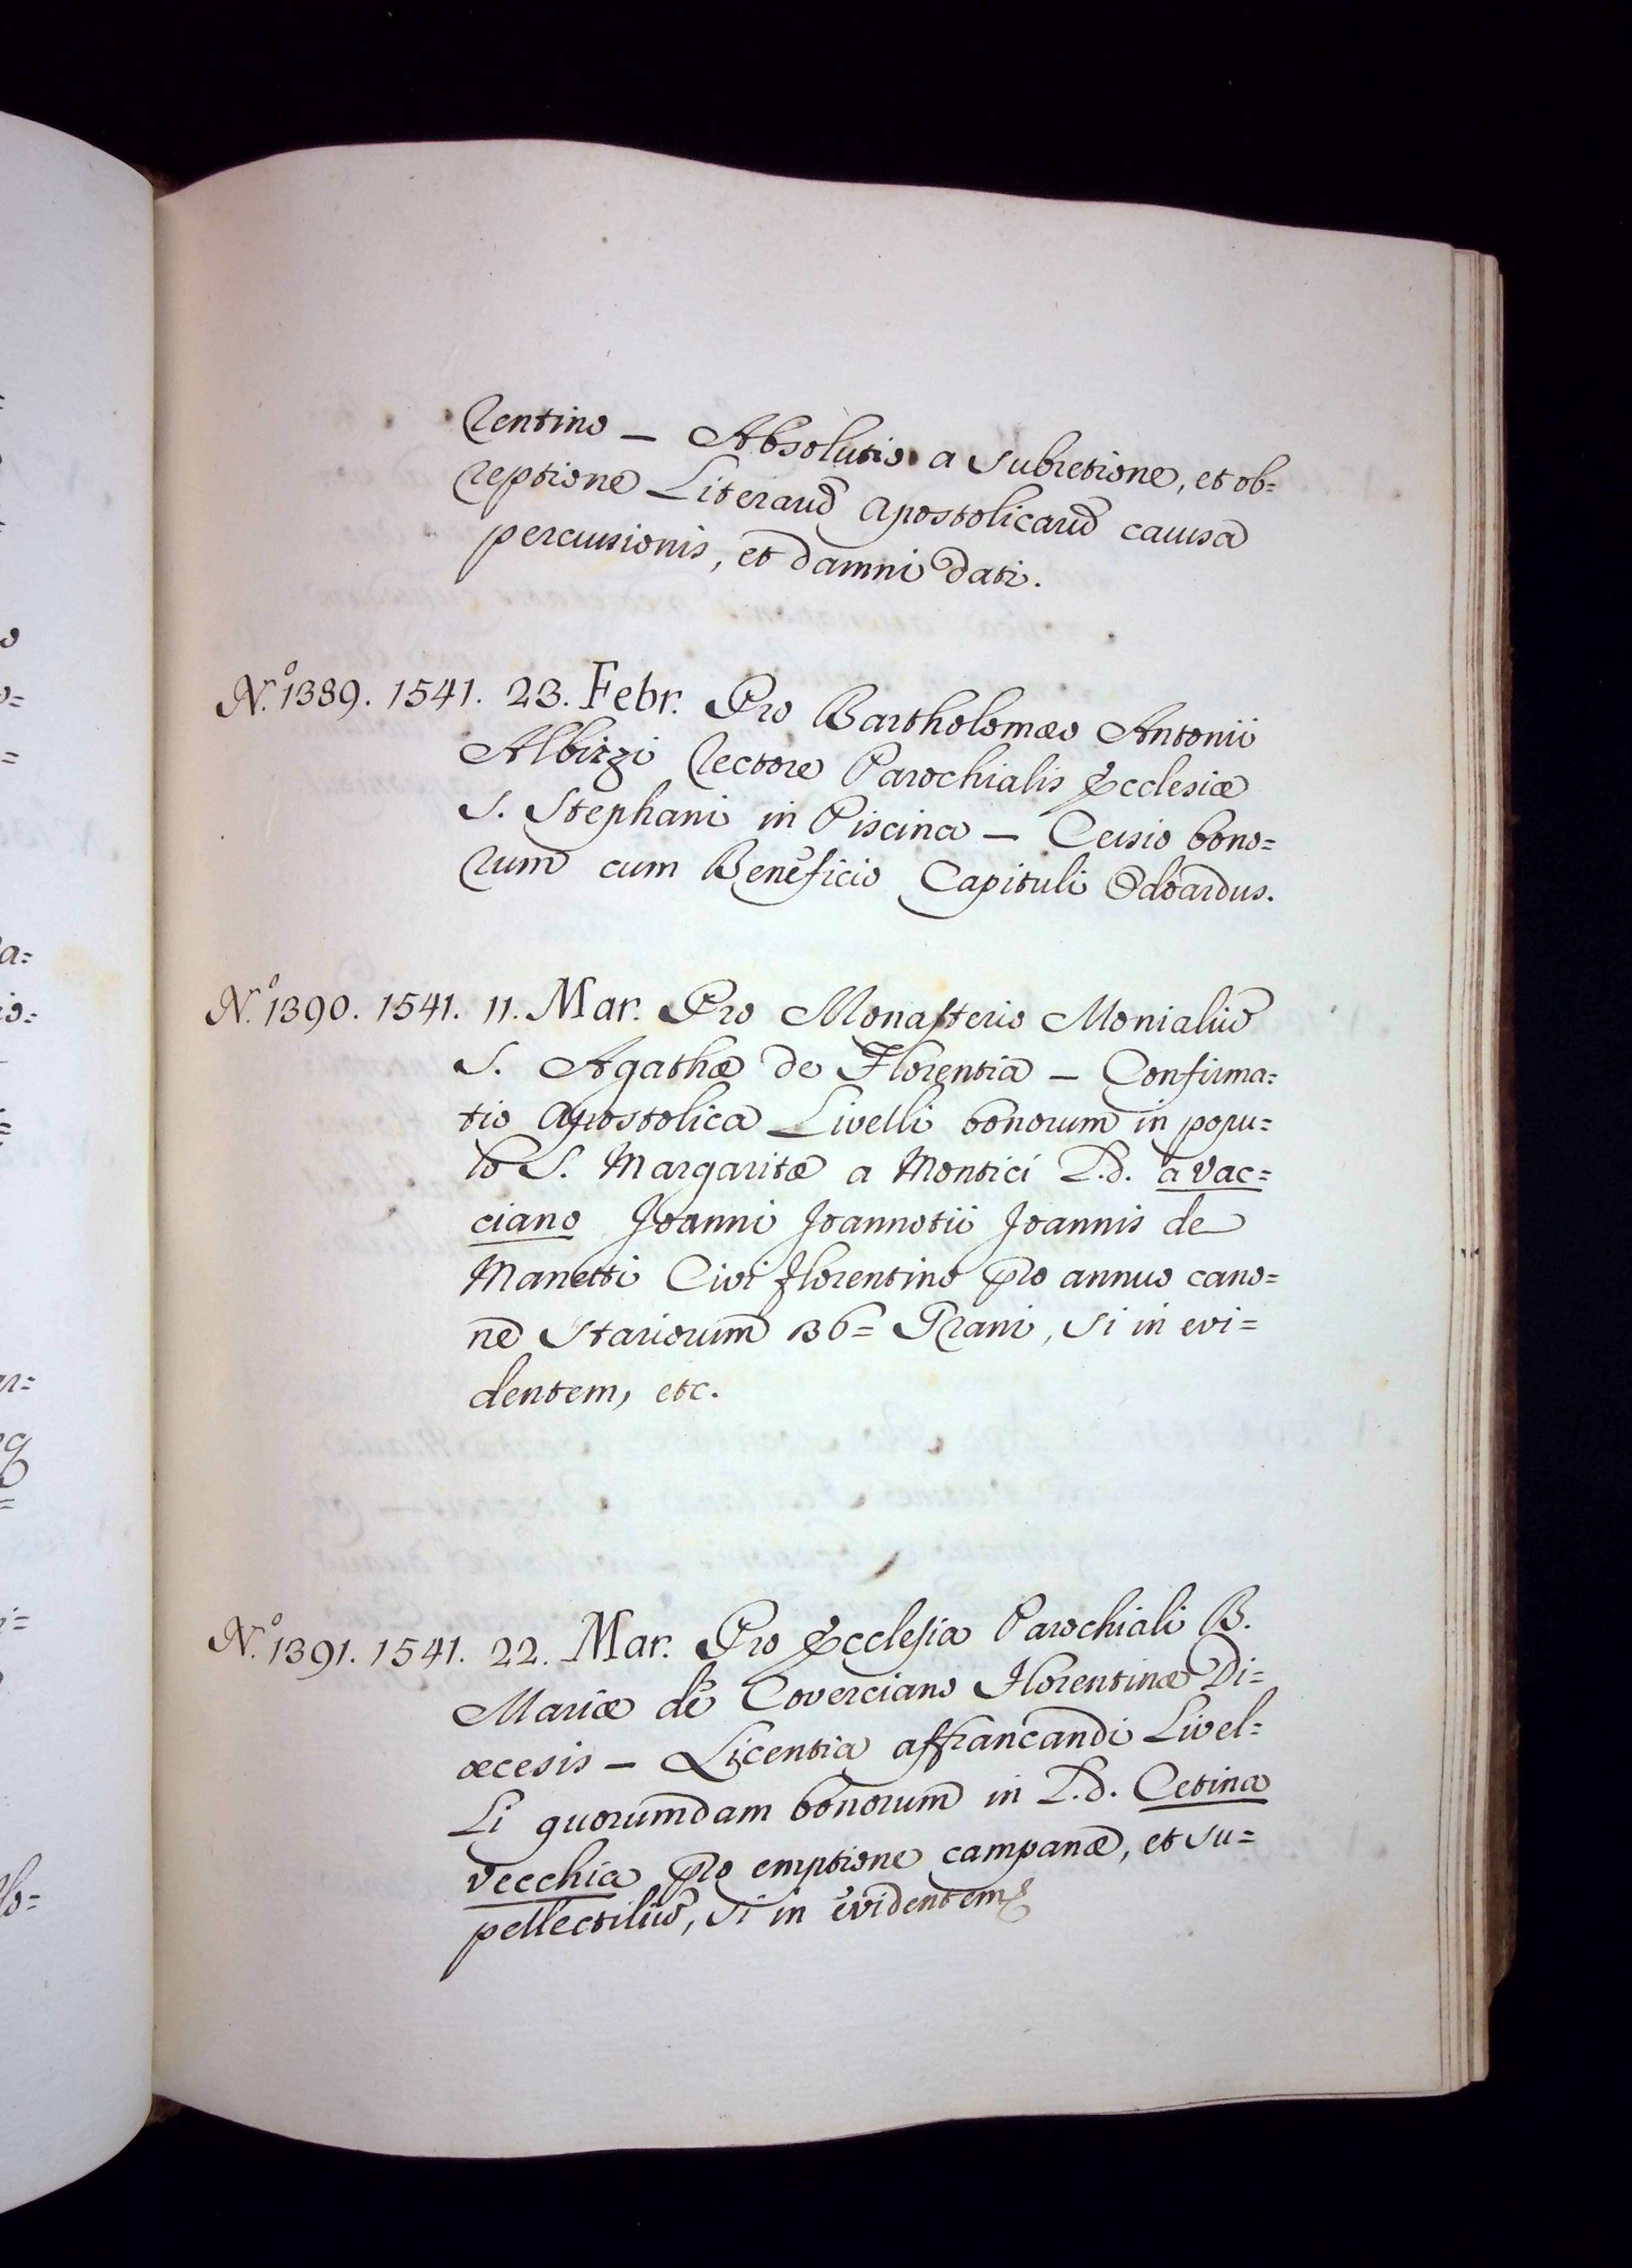 rentino — Absolutio a subretione, et ob=
reptione Literarũ Apostolicarũ causa
percussionis, et damni dati.
N.º 1389. 1541. 23. Febr. Pro Bartholomæo Antonii
Albizzi Rectore Parochialis Ecclesiæ
S. Stephani in Piscina — Cessio bono=
rum cum Beneficio Capituli Odoardus.
N.º 1390. 1541. 11. Mar. Pro Monasterio Monialiũ
S. Agathæ de Florentia — Confirma=
tio Apostolica Livelli bonorum in popu=
lo S. Margaritæ a Montici L.d. a Vac=
ciano Joanni Joannotii Joannis de
Manetti Civi Florentino pro annuo cano=
ne Stariorum 36= Grani, si in evi=
dentem, etc.
N.º 1391. 1541. 22. Mar. Pro Ecclesia Parochiali B.
Mariæ de Coverciano Florentinæ Di=
œcesis — Licentia affrancandi Livel=
Li quorumdam bonorum in L.d. Cetina
vecchia pro emptione campanæ, et su=
pellectiliũ, si in evidentem